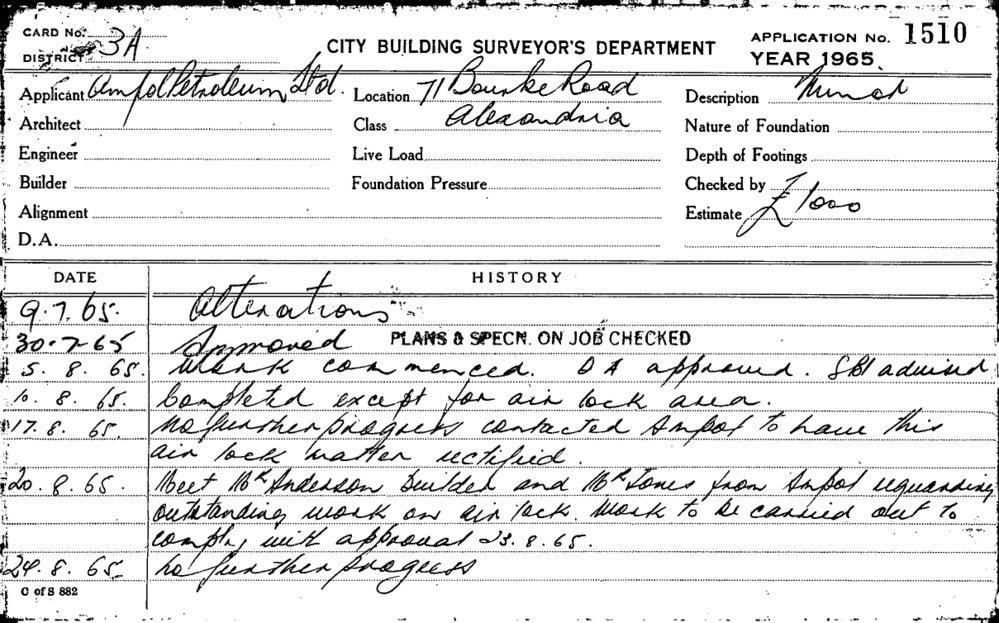 CARD No. 3A
DISTRICT
CITY BUILDING SURVEYOR'S DEPARTMENT
APPLICATION No. 1510
YEAR 1965.
Applicant Ampol Petroleum Ltd. Location 71 Bourke Road Description Minor
Architect Class Alexandria Nature of Foundation
Engineer Live Load Depth of Footings
Builder Foundation Pressure Checked by
Alignment Estimate £1000
D.A.
DATE HISTORY
9.7.65. Alterations
30-7-65 Approved PLANS & SPECN. ON JOB CHECKED
5. 8. 65. Work commenced. DA approved. SBI advised
10. 8. 65. Completed except for air lock area.
17. 8. 65. No further progress contacted Ampol to have this
air lock matter rectified.
20. 8. 65. Meet Mr Anderson builder and Mr Jones from Ampol reguarding
outstanding work on air lock. Work to be carried out to
comply with approval 23. 8. 65.
24. 8. 65. No further progress
C of S 882